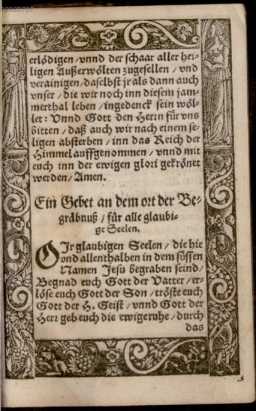 erlödigen/ vnnd der schaar aller hei-
ligen Außerwölten zugesellen/ vnd
verainigen/ daselbst jr als dann auch
vnser/ die wir noch inn disem jam-
merthal leben/ ingedenck sein wöl-
let: Vnnd Gott den Herrn für vns
bitten/ daß auch wir nach einem se-
ligen absterben/ inn das Reich der
Himmel auffgenommen/ vnnd mit
euch inn der ewigen glori gekrönet
werden/ Amen.
Ein Gebet an dem ort der Be-
gräbnuß/ für alle glaubi-
ge Seelen.
OJr glaubigen Seelen/ die hie
vnd allenthalben in dem süssen
Namen Jesu begraben seind/
Begnad euch Gott der Vatter/ er-
löse euch Gott der Son/ tröste euch
Gott der H. Geist/ vnnd Gott der
Herr geb euch die ewige ruhe/ durch
das